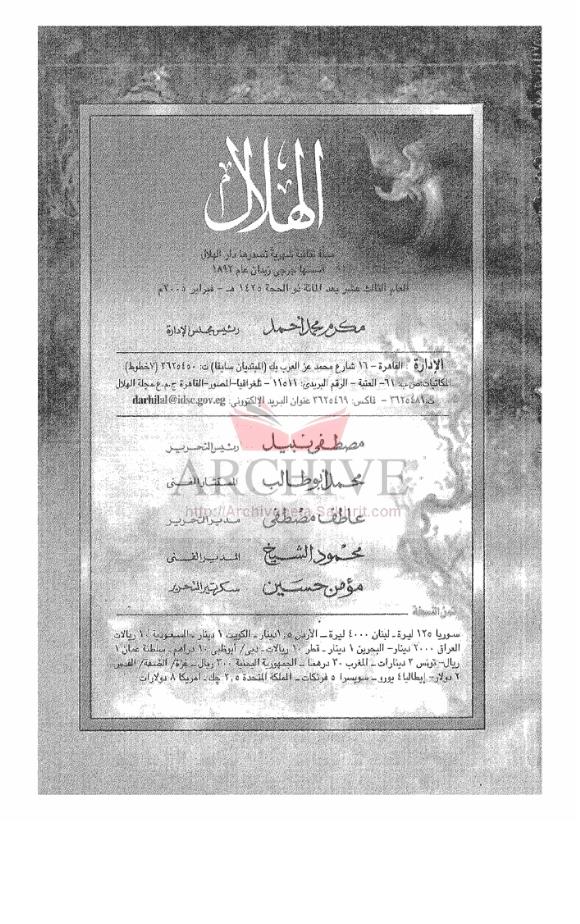 الهلال
مجلة ثقافية شهرية تصدرها دار الهلال
أسسها جرجى زيدان عام ١٨٩٢
العام الثالث عشر بعد المائة ذو الحجة ١٤٢٥ هـ - فبراير ٢٠٠٥م
مكرم محمد أحمد رئيس مجلس الإدارة
الإدارة : القاهرة - ١٦ شارع محمد عز العرب بك (المبتديان سابقا) ت: ٣٦٢٥٤٥٠ (٧خطوط)
المكاتبات: ص.ب: ٦١- العتبة - الرقم البريدى: ١١٥١١ - تلغرافيا-المصور-القاهرة ج.م.ع مجلة الهلال
ت: ٣٦٢٥٤٨١ - فاكس: ٣٦٢٥٤٦٩ عنوان البريد الإلكترونى: darhilal@idsc.gov.eg
مصطفى نبيل رئيس التحرير
محمد أبوطالب المستشار الفنى
ARCHIVE
http://Archivebeta.Sakhrit.com
عاطف مصطفى مدير التحرير
محمود الشيخ المدير الفنى
مؤمن حسين سكرتير التحرير
ثمن النسخة
سوريا ١٢٥ ليرة ـ لبنان ٤٠٠٠ ليرة ـ الأردن ١,٥دينار ـ الكويت ١ دينار ـ السعودية ١٠ ريالات
العراق ٢٠٠٠ دينار- البحرين ١ دينار ـ قطر ١٠ ريالات ـ دبى/ أبوظبى ١٠ دراهم ـ سلطنة عمان ١
ريال- تونس ٣ دينارات ـ المغرب ٣٠ درهما ـ الجمهورية اليمنية ٣٠٠ ريال ـ غزة/ الضفة/ القدس
٢ دولار- إيطاليا ٤ يورو ـ سويسرا ٥ فرنكات ـ المملكة المتحدة ٢,٥ جك ـ أمريكا ٨ دولارات